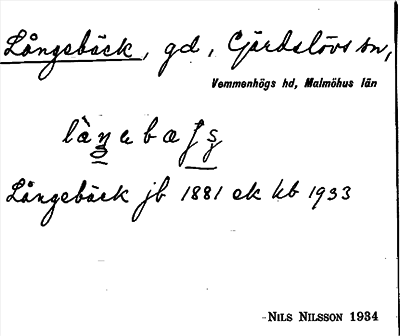 Långebäck, gd, Gärdslövs sn,
Vemmenhögs hd, Malmöhus län
Långebäck jb 1881 ek kb 1933
NILS NILSSON 1934